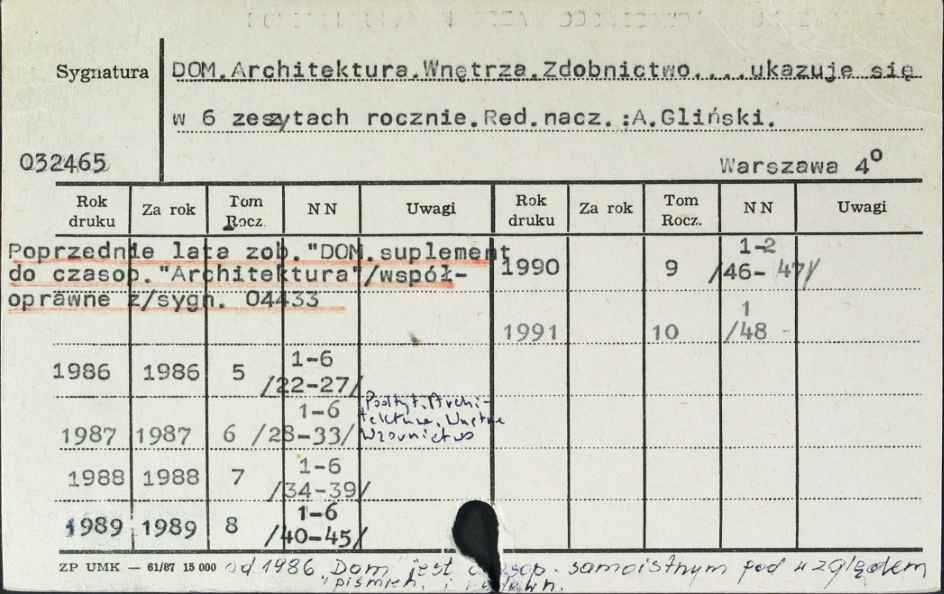 Sygnatura DOM.Architektura.Wnętrza.Zdobnictwo....ukazuje się
w 6 zeszytach rocznie.Red.nacz.:A.Gliński.
032465 Warszawa 4°
Rok druku Za rok Tom Rocz. NN Uwagi Rok druku Za rok Tom Rocz. NN Uwagi
Poprzednie lata zob."DOM.suplement
do czasop."Architektura"/współ-
oprawne z/sygn. 04433
1990 9 1-2
/46- 47/
1991 10 1
/48 -
1986 1986 5 1-6
/22-27/
1987 1987 6 1-6
/28-33/
Podtyt. Archi-
tektura, Wnętrze
1988 1988 7 1-6
/34-39/
1989 1989 8 1-6
/40-45/
ZP UMK — 61/87 15 000 od 1986 Dom jest samoistnym pod względem
piśmien. i